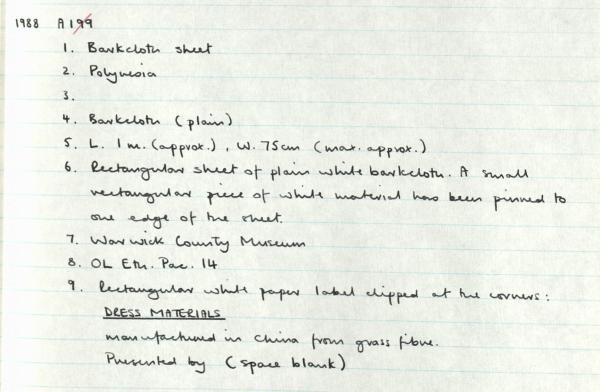 1988 A199
1. Barkcloth sheet
2. Polynesia
3.
4. Barkcloth (plain)
5. L. 1m. (approx.), W. 75cm (max. approx.)
6. Rectangular sheet of plain white barkcloth. A small
rectangular piece of white material has been pinned to
one edge of the sheet.
7. Warwick County Museum
8. OL Eth. Pac. 14
9. Rectangular white paper label clipped at the corners:
DRESS MATERIALS
manufactured in China from grass fibre.
Presented by (space blank)